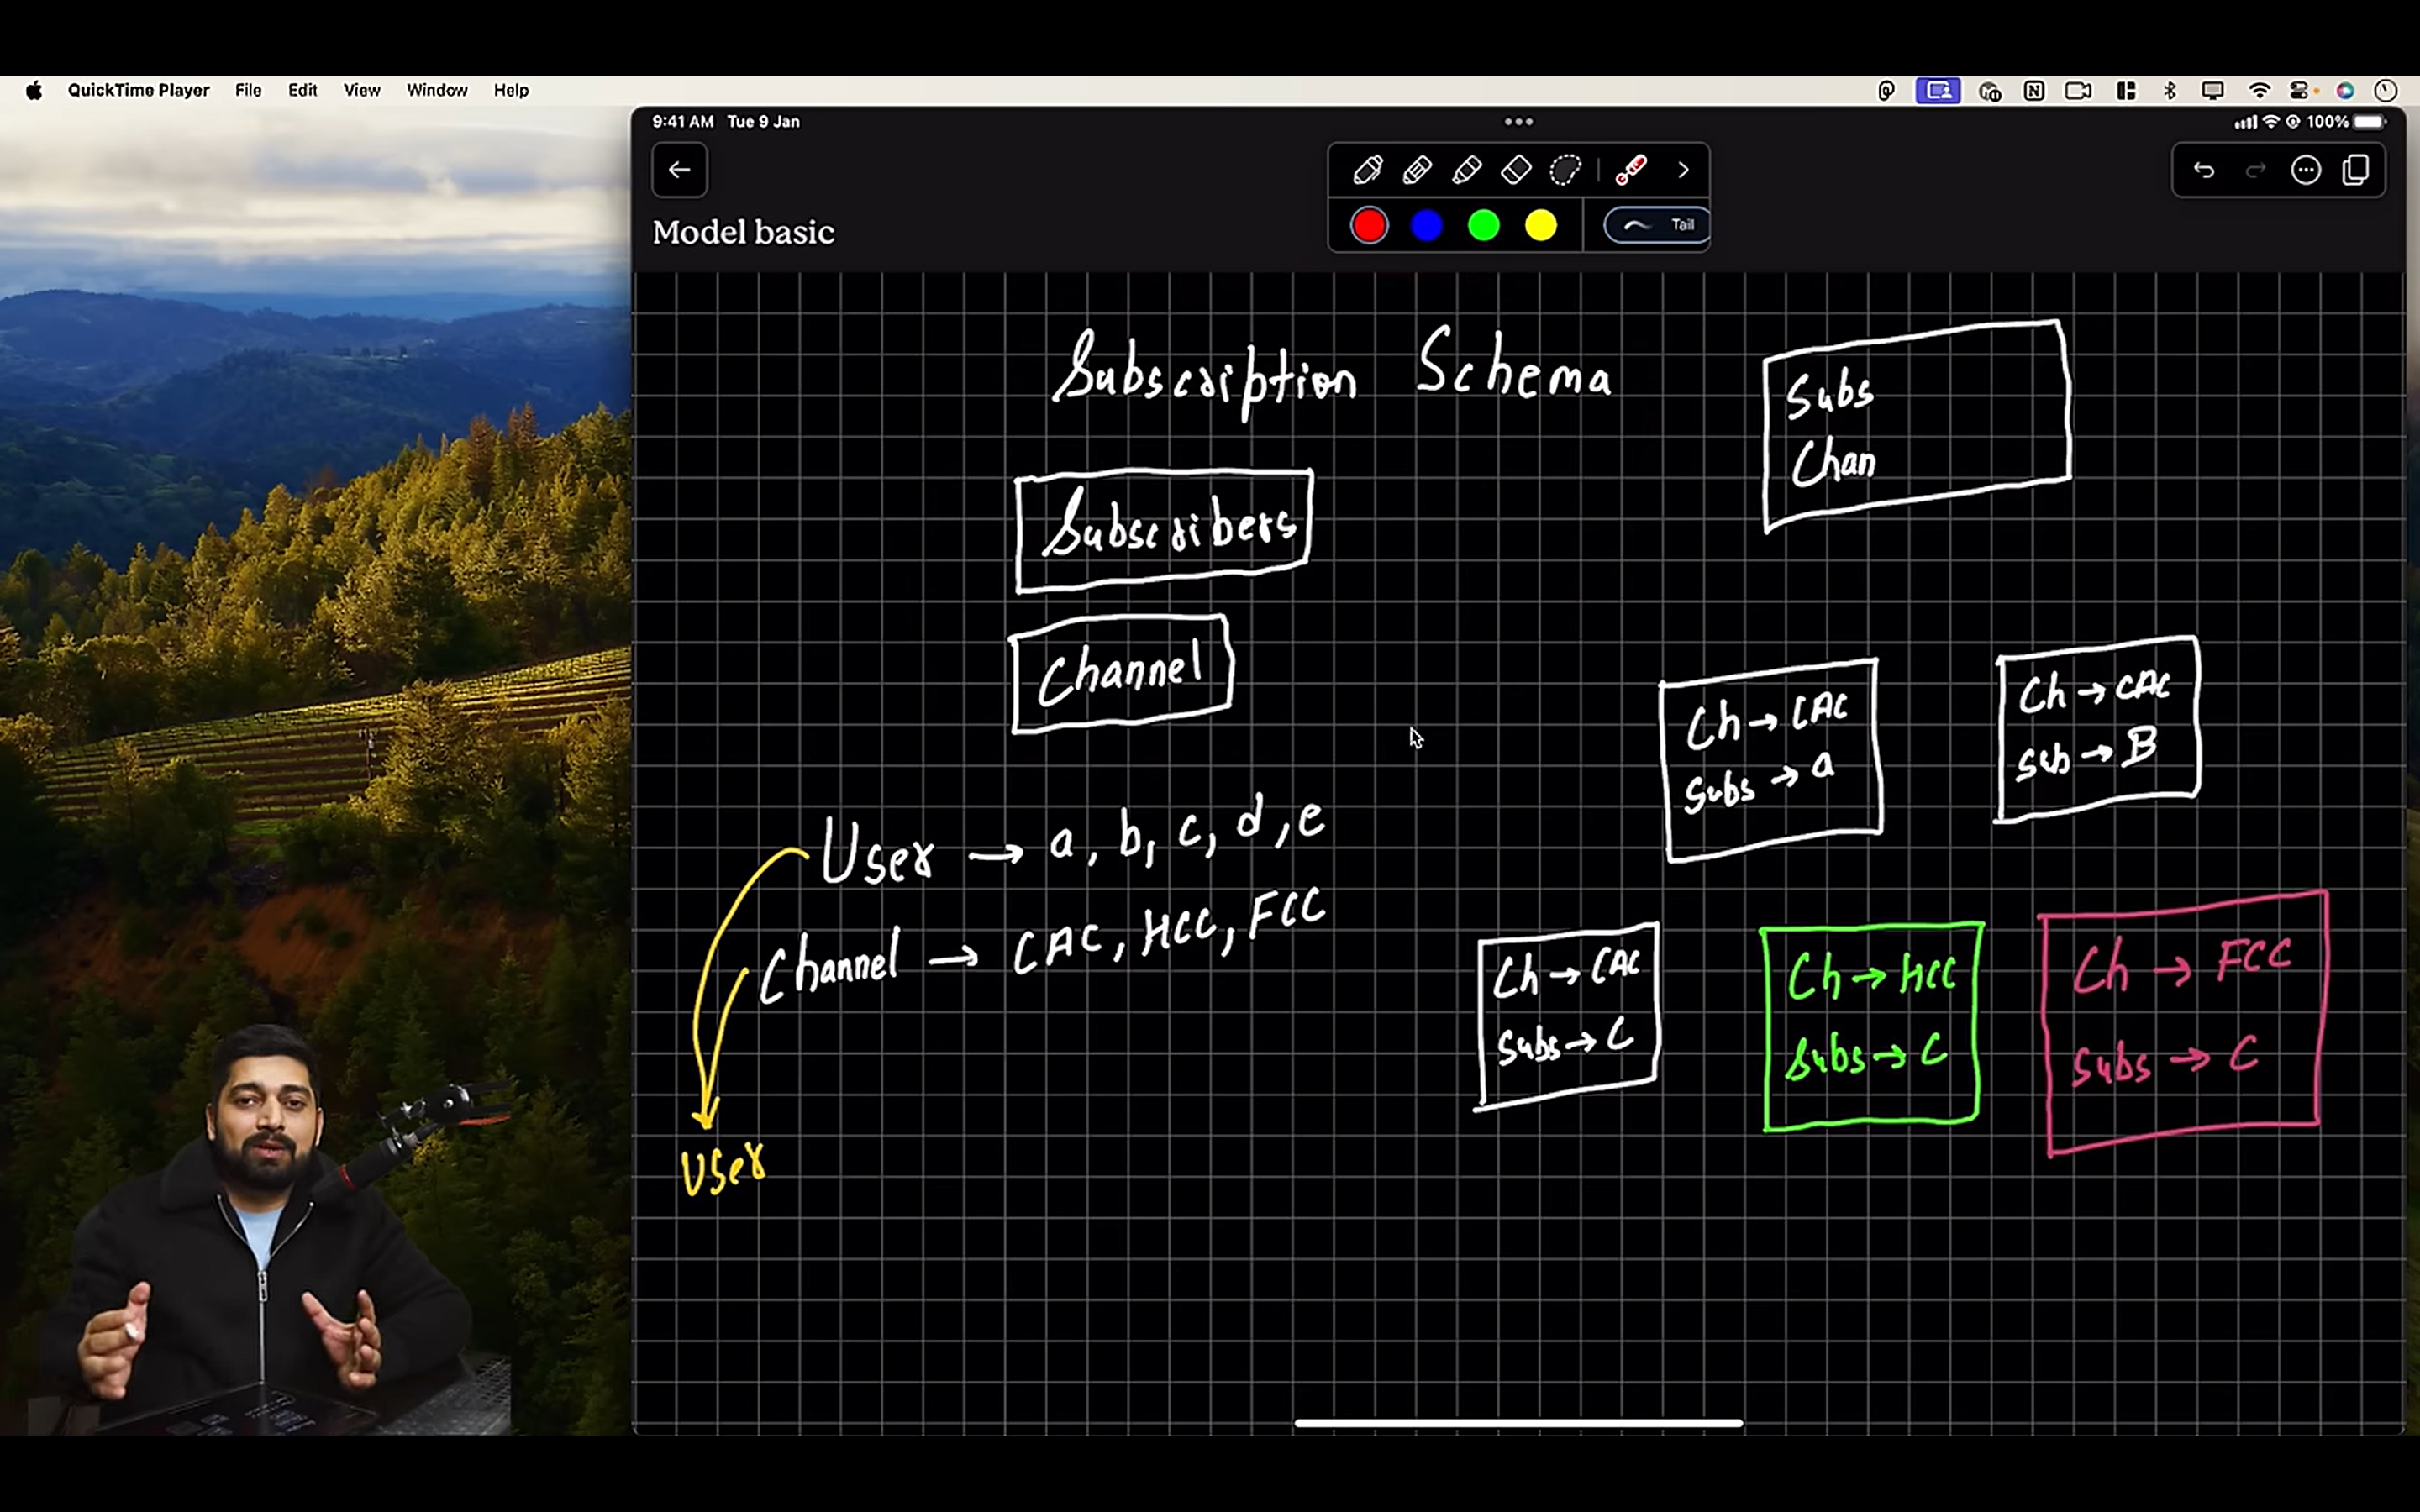 QuickTime Player File Edit View Window Help
9:41 AM Tue 9 Jan
100%
Model basic
Tail
Subscription Schema
Subs
Chan
Subscribers
Channel
Ch → CAC
Subs → a
Ch → CAC
Sub → B
User → a, b, c, d, e
Channel → CAC, HCC, FCC
Ch → CAC
Subs → C
Ch → HCC
Subs → C
Ch → FCC
Subs → C
User